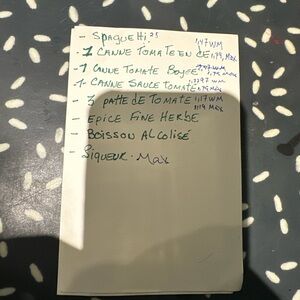 - Spaguetti 1,47 WM
- 1 Canne Tomate en dé 1,19, Max
- 1 Canne Tomate Boyce 1,47 WM 1,79 Max
- 1 Canne Sauce Tomate 1,79 Max
- 3 patte de Tomate 1,17 WM 1,19 Max
- Epice Fine Herbe
- Boisson Alcolisé
- Siqueur. Max